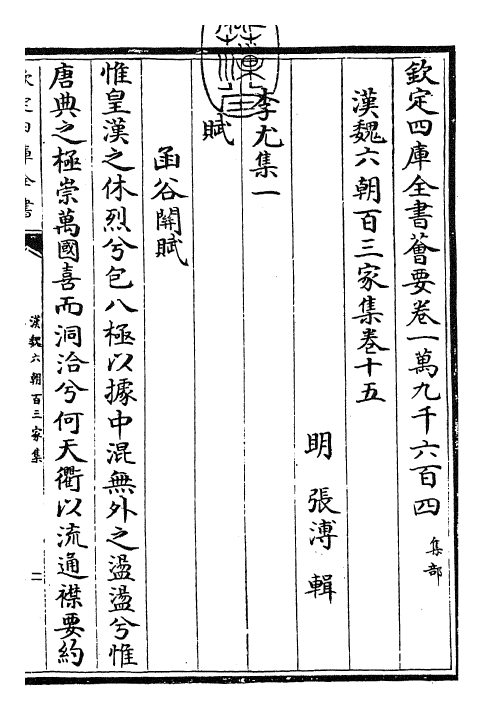 欽定四庫全書薈要卷一萬九千六百四 集部
漢魏六朝百三家集卷十五
明 張溥 輯
李尤集一
賦
函谷關賦
惟皇漢之休烈兮包八極以據中混無外之盪盪兮惟
唐典之極崇萬國喜而洞洽兮何天衢以流通襟要約
欽定四庫全書
漢魏六朝百三家集
二